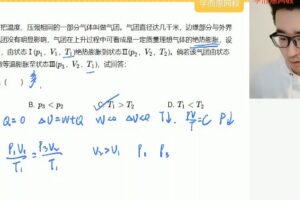 学而思网校
把温度、压强相同的一部分气体叫做气团。气团直径达几千米，边缘部分与外界
团没有明显影响，气团在上升过程中可看成是一定质量理想气体的绝热膨胀，设
，由状态Ⅰ(p₁，V₁，T₁)绝热膨胀到状态Ⅱ(p₂，V₂，T₂)。倘若该气团由状态
等温膨胀至状态Ⅲ(p₃，V₂，T₁)，试回答：
B. p₃ < p₂ C. T₁ > T₂ D. T₁ < T₂
Q=0 ΔU=W+Q W<0 ΔU<0 T↓ PV/T=C P↓
P₁V₁/T₁=P₃V₂/T₁ V₂>V₁ P₁ P₃